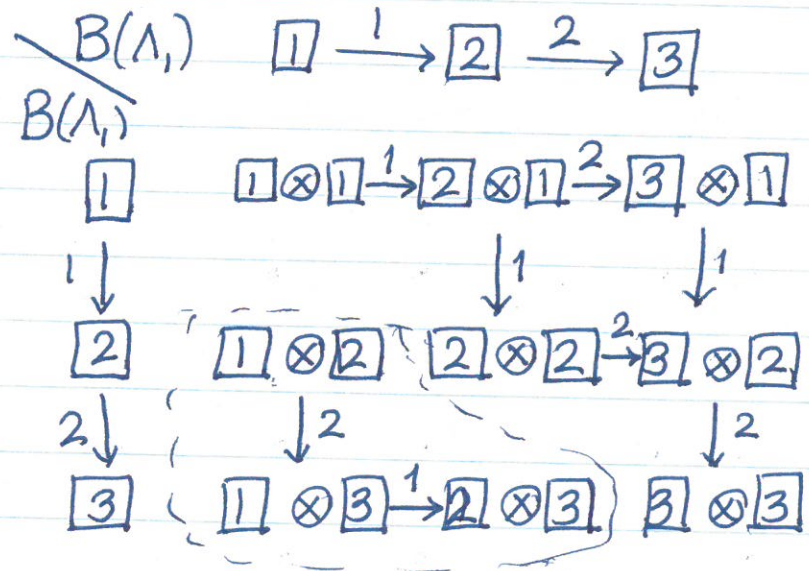 B(Λ₁) 1 1→ 2 2→ 3
B(Λ₁)
1 1 ⊗ 1 1→ 2 ⊗ 1 2→ 3 ⊗ 1
1 ↓ ↓ 1 ↓ 1
2 1 ⊗ 2 2 ⊗ 2 2→ 3 ⊗ 2
2 ↓ ↓ 2 ↓ 2
3 1 ⊗ 3 1→ 2 ⊗ 3 3 ⊗ 3